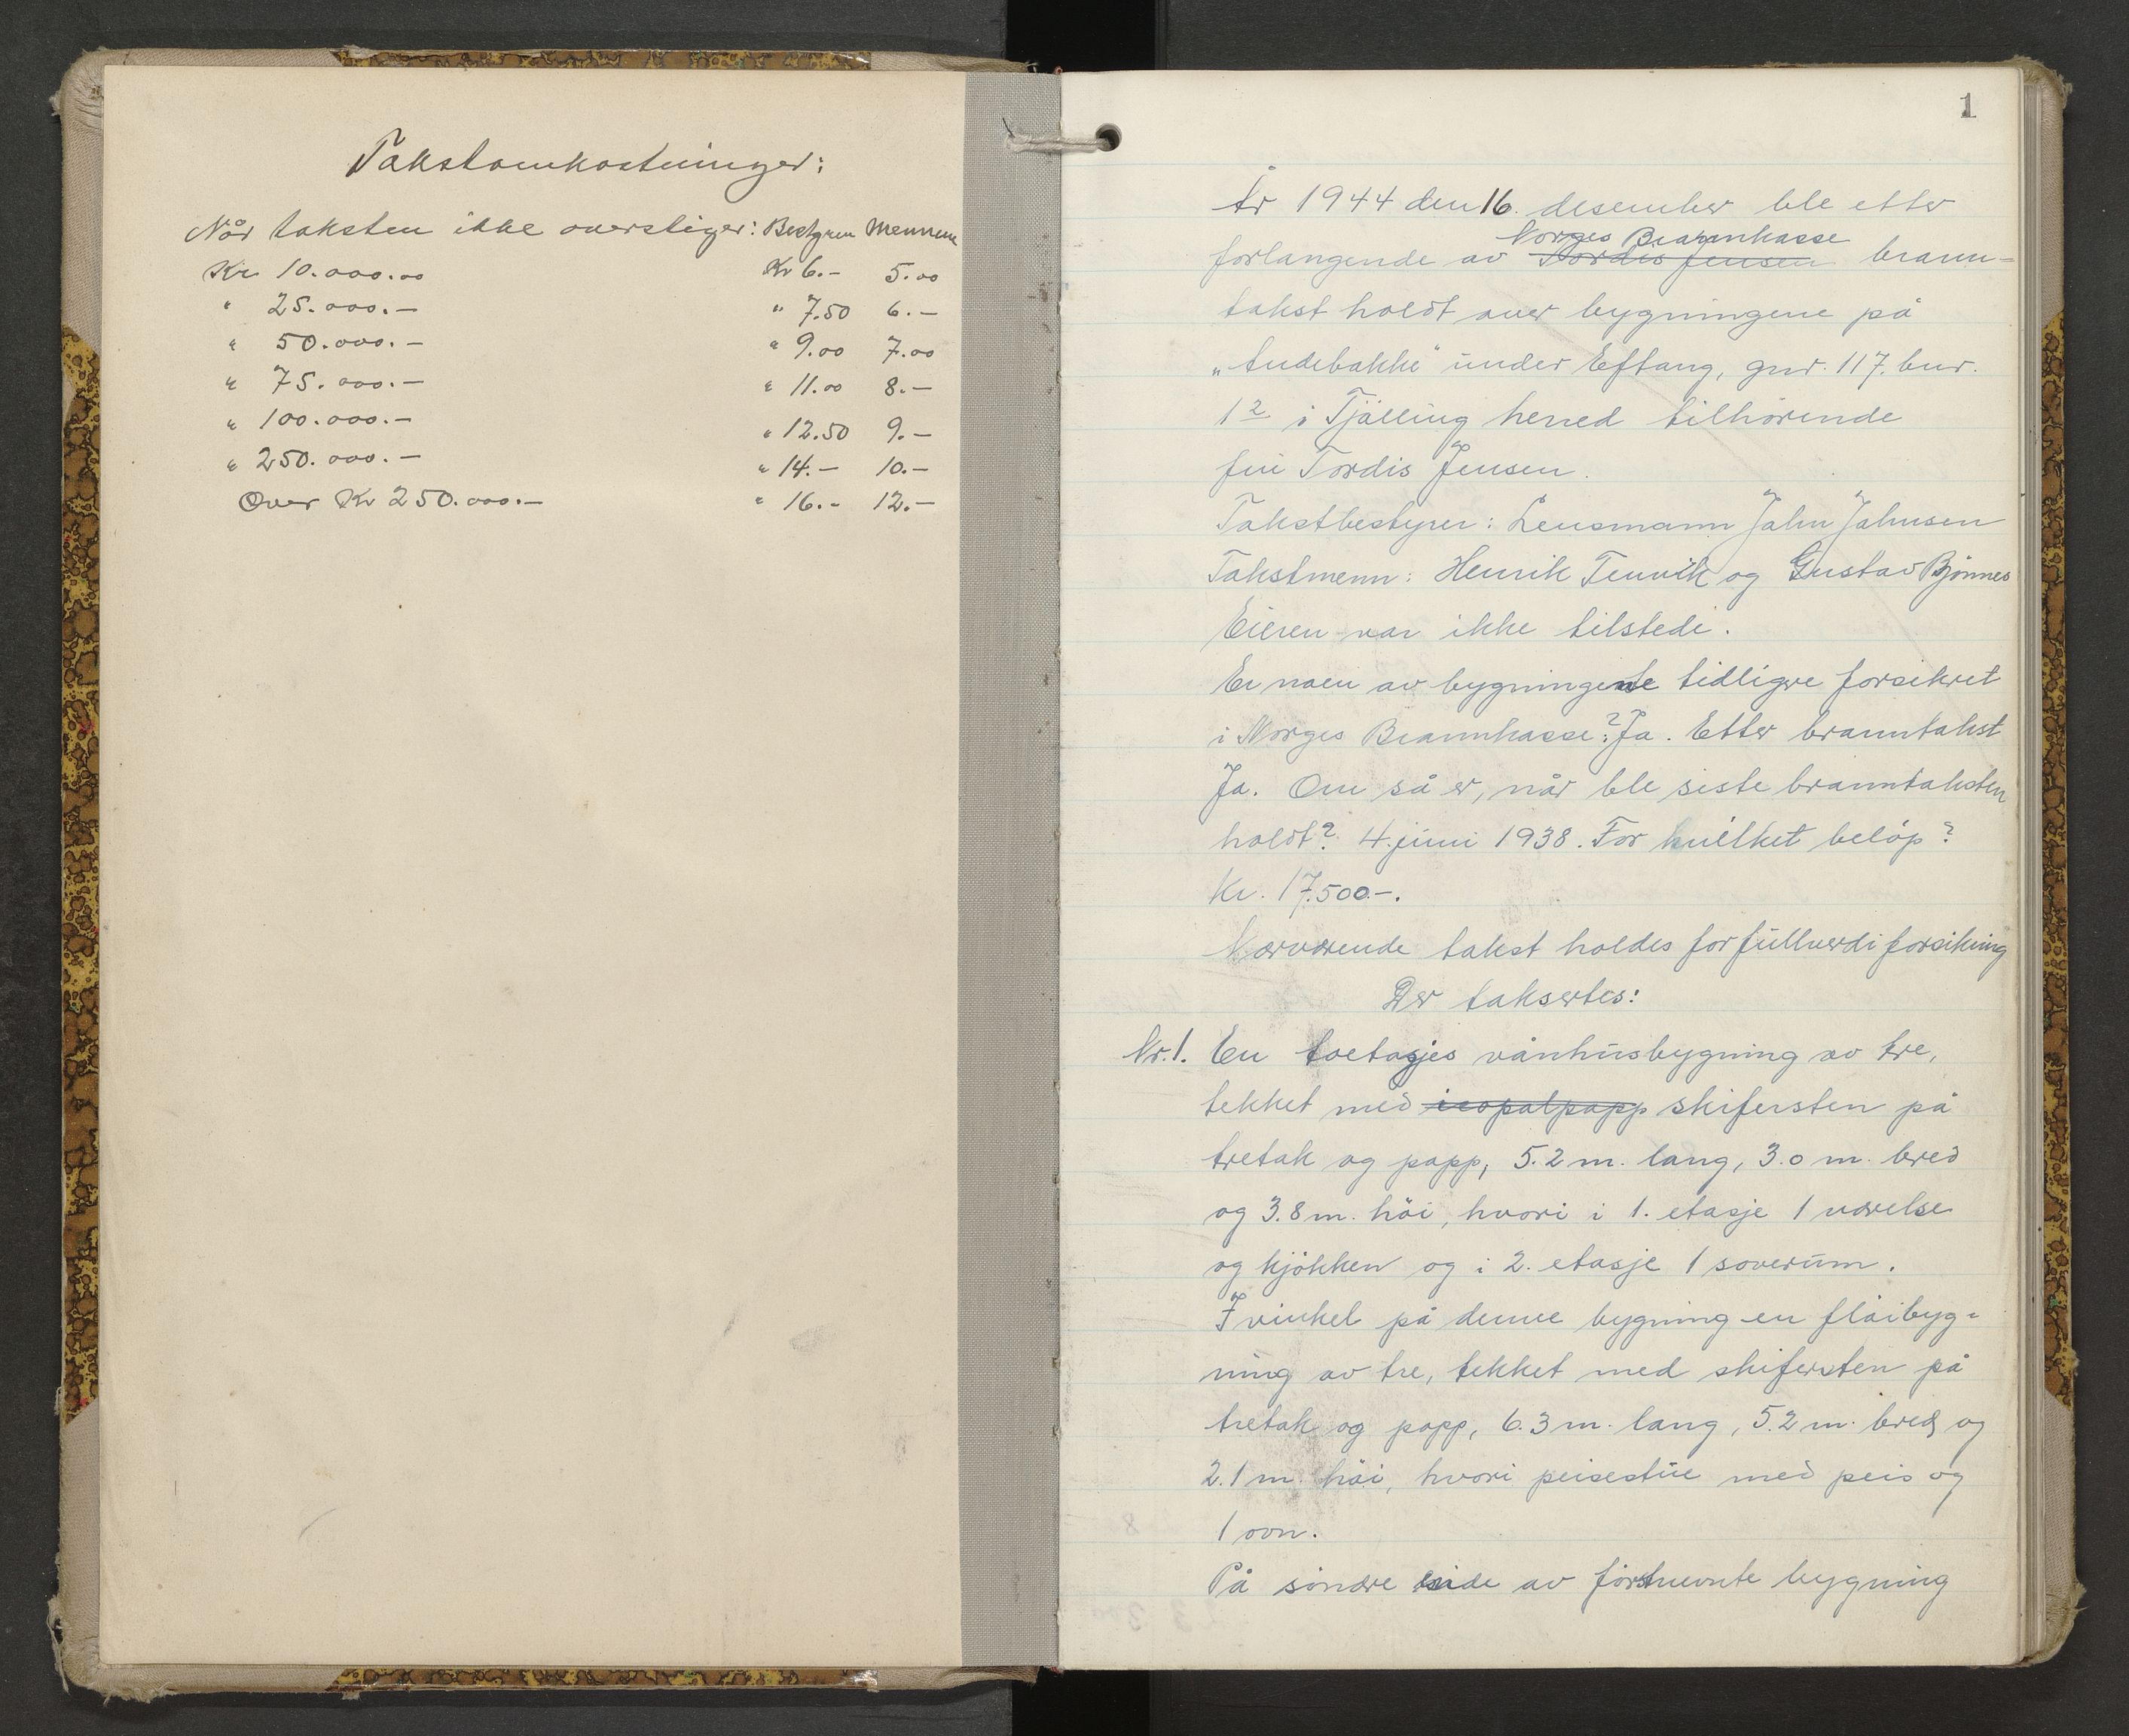 Takstomkostninger:
Når taksten ikke overstiger: Bestyren Mennene
Kr. 10.000.00 Kr 6.- 5.00
" 25.000.- " 7.50 6.-
" 50.000.- " 9.00 7.00
" 75.000.- " 11.00 8.-
" 100.000.- " 12.50 9.-
" 250.000.- " 14.- 10.-
Over Kr 250.000.- " 16.- 12.-
1
År 1944 den 16. desember ble etter
Norges Brannkasse
forlangende av Tordis Jensen brann-
takst holdt over bygningene på
under Eftang, gnr. 117. bnr.
12 i Tjølling herred tilhörende
fru Tordis Jensen.
Takstbestyrer: Lensmann Jahn Jahnsen
Takstmenn: Henrik Tenvik og Gustav Bjønnes
Eieren var ikke tilstede.
Er noen av bygningene tidligere forsikret
i Norges Brannkasse? Ja. Etter branntakst
Ja. Om så er, når ble siste branntaksten
holdt? 4. juni 1938. For hvilket beløp?
Kr. 17.500.-.
Nærværende takst holdes for fullverdiforsikring
Der taksertes:
Nr. 1. En toetasjes vånhusbygning av tre,
tekket med icopalpapp skifersten på
tretak og papp, 5.2 m. lang, 3.0 m. bred
og 3.8 m. höi, hvori i 1. etasje 1 værelse
og kjökken og i 2. etasje 1 soverum.
I vinkel på denne bygning en flöibyg-
ning av tre, tekket med skifersten på
tretak og papp, 6.3 m. lang, 5.2 m. bred og
2.1 m höi, hvori peisestue med peis og
1 ovn.
På söndre side av förstnevnte bygning